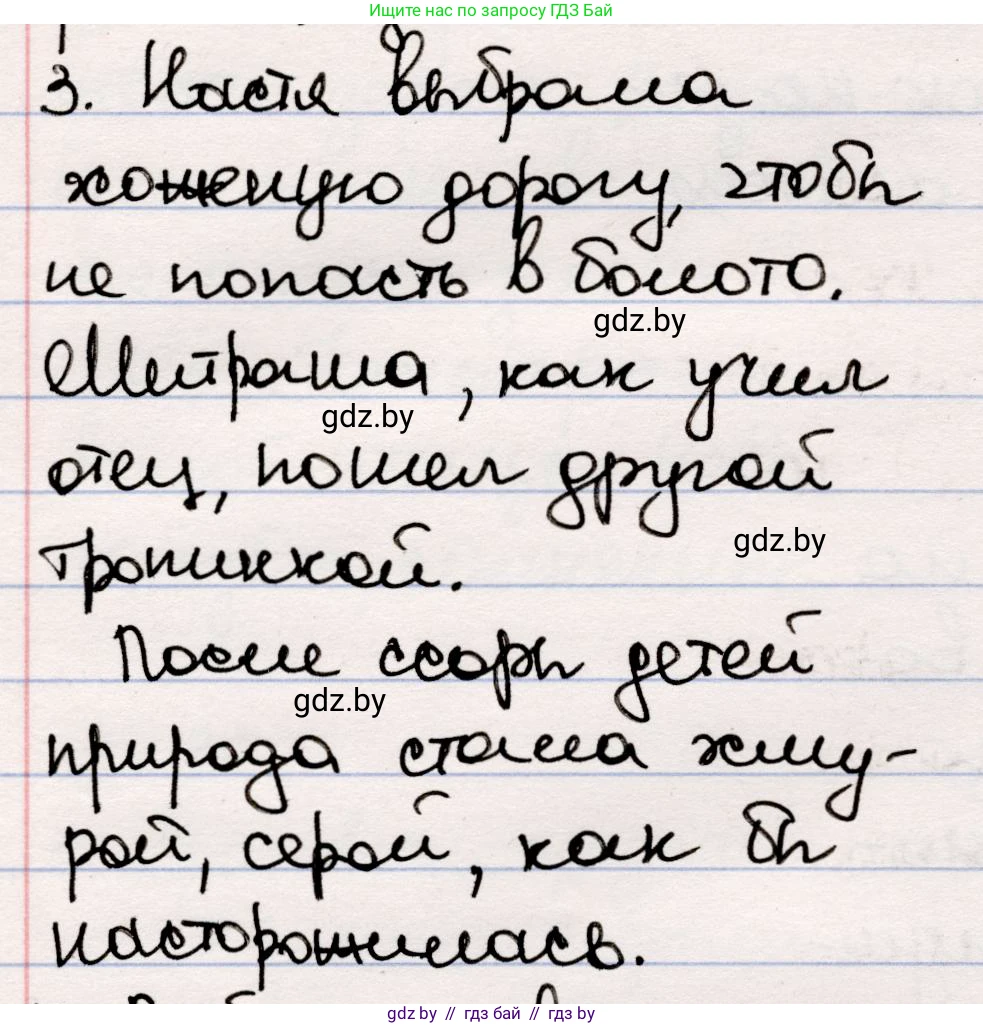 Ищите нас по запросу ГДЗ Бай
3. Настя выбрала
хоженую дорогу, чтобы
не попасть в болото.
gdz.by
Митраша, как учил
gdz.by
отец, пошел другой
gdz.by
тропинкой.
После ссоры детей
gdz.by
природа стала хму-
рой, серой, как бы
насторожилась.
gdz.by // гдз бай // gdz.by